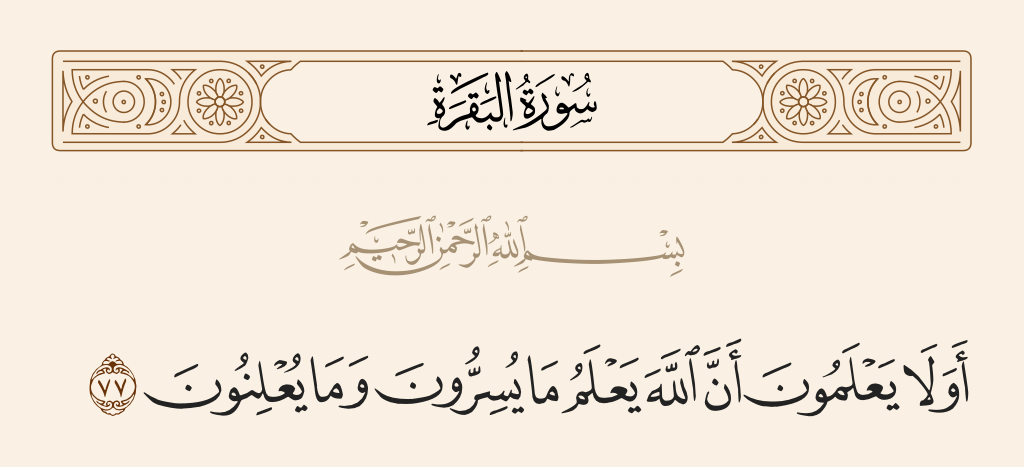 سُورَةُ البَقَرَةِ
بِسْمِ ٱللَّهِ ٱلرَّحْمَٰنِ ٱلرَّحِيمِ
أَوَلَا يَعْلَمُونَ أَنَّ ٱللَّهَ يَعْلَمُ مَا يُسِرُّونَ وَمَا يُعْلِنُونَ ٧٧